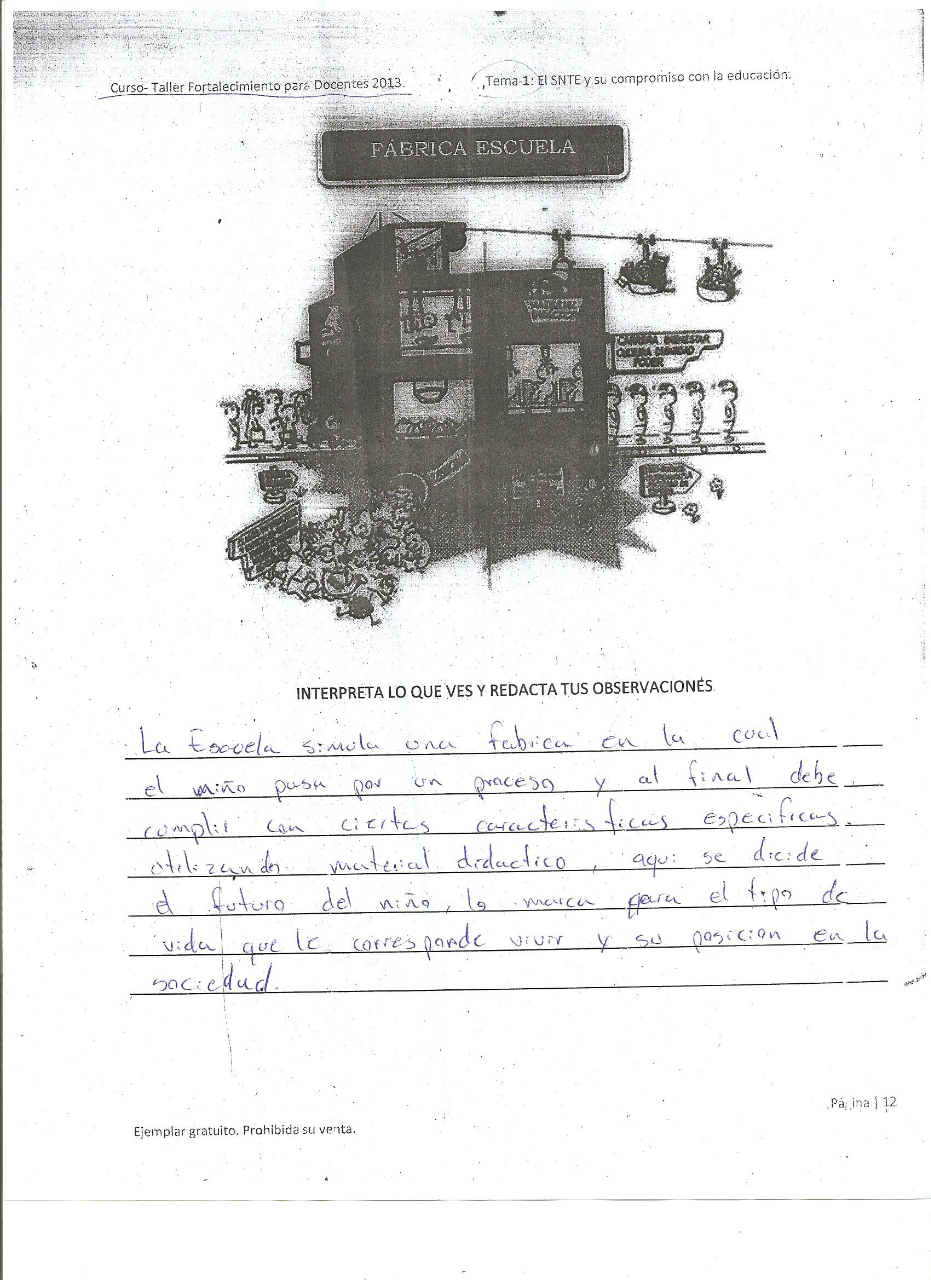 Curso- Taller Fortalecimiento para Docentes 2013.
Tema-1: El SNTE y su compromiso con la educación.
FÁBRICA ESCUELA
CARRERA BIENESTAR
PODER
INTERPRETA LO QUE VES Y REDACTA TUS OBSERVACIONES
La Escuela simula una fabrica en la cual
el niño pasa por un proceso y al final debe
cumplir con ciertas caracteristicas especificas.
utilizando material didactico, aqui se dicide
el futuro del niño, lo marca para el tipo de
vida que le corresponde vivir y su posicion en la
sociedad.
Página | 12
Ejemplar gratuito. Prohibida su venta.